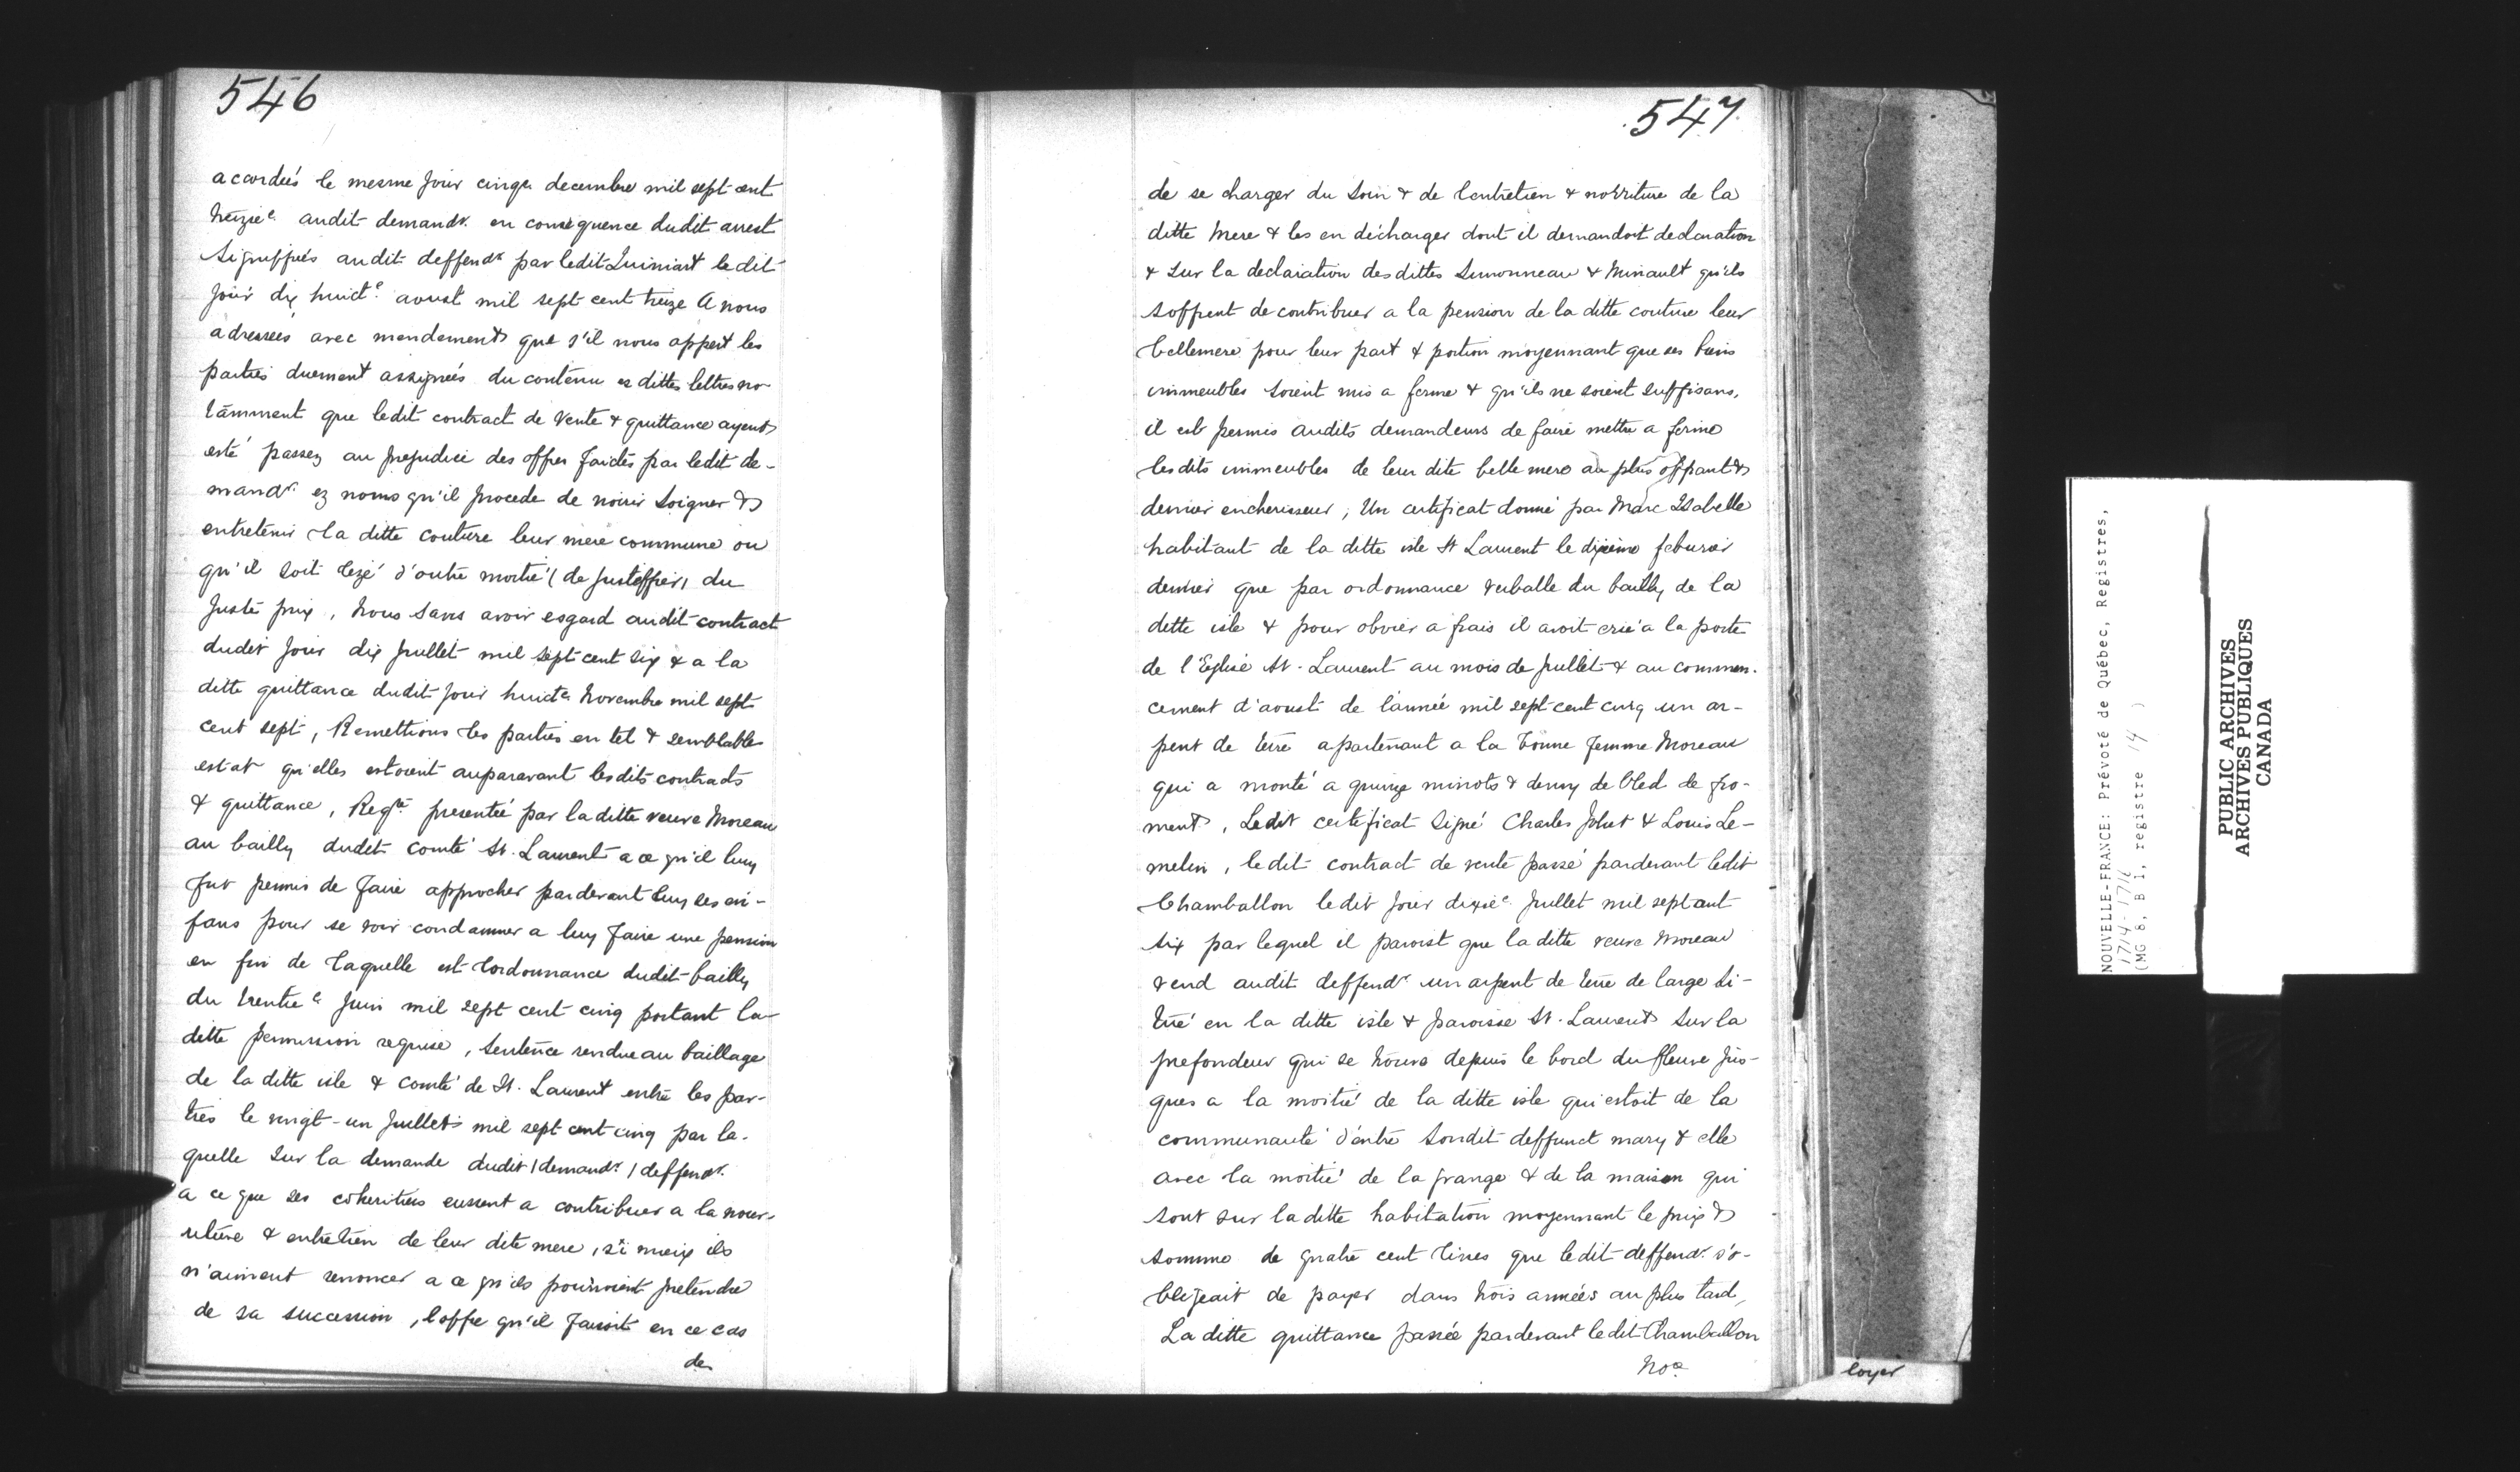 546
accordées le mesme jour cinqe. decembre mil sept cent
treizie. audit demandr. en consequence dudit arrest
signiffiés audit deffendr par ledit Quiniart ledit
jour dix huicte. aoust mil sept cent treize A nous
adressées avec mandement que s'il nous appert les
parties duement assignées du contenu es dittes lettres no-
tamment que ledit contract de vente & quittance ayent
esté passez au prejudice des offres faictes par ledit de-
mandr. ez noms qu'il procede de nourir soigner &
entretenir la ditte couture leur mere commune ou
qu'il soit lezé d'outre moitié (de justiffier) du
juste prix, nous sans avoir esgard audit contract
dudit jour dix juillet mil sept cent six & a la
ditte quittance dudit jour huicte. novembre mil sept
cent sept, Remettions les parties en tel & semblable
estat qu'elles estoient auparavant lesdits contracts
& quittance, Reqte. presentée par la ditte veuve Moreau
au bailly dudit comté St. Laurent a ce qu'il luy
fut permis de faire approcher pardevant luy ses en-
fans pour se voir condamner a luy faire une pension
en fin de laquelle est l'ordonnance dudit bailly
du trentie. juin mil sept cent cinq portant la
ditte permission requise, sentence rendue au baillage
de la ditte isle & comté de St. Laurent entre les par-
ties le vingt-un juillet mil sept cent cinq par la-
quelle sur la demande dudit / demandr. / deffendr.
a ce que ses coheritiers eussent a contribuer a la nour-
riture & entretien de leur dite mere, si mieux ils
n'aiment renoncer a ce qu'ils pourroient pretendre
de sa succession, l'offre qu'il faisoit en ce cas
de
547
de se charger du soin & de lentretien & nourriture de la
ditte mere & les en décharger dont il demandoit declaration
& sur la declaration des dittes Simonneau & Minault qu'ils
soffrent de contribuer a la pension de la ditte couture leur
bellemere pour leur part & portion moyennant que ses biens
immeubles soient mis a ferme & qu'ils ne soient suffisans,
il est permis audits demandeurs de faire mettre a ferme
lesdits immeubles de leur dite belle mere au plus offrant &
dernier encherisseur; Un certificat donné par Marc Isabelle
habitant de la ditte isle St Laurent le dixieme feburier
dernier que par ordonnance verballe du bailly de la
ditte isle & pour obvier a frais il avoit crié a la porte
de l'Eglise St. Laurent au mois de juillet & au commen-
cement d'aoust de l'année mil sept cent cinq un ar-
pent de terre apartenant a la bonne femme Moreau
qui a monté a quinze minots & demy de bled de fro-
ment, Ledit certificat signé Charles Joliet & Louis Le-
melin, ledit contract de vente passé pardevant ledit
Chamballon ledit jour dixie. juillet mil sept cent
six par lequel il paroist que la ditte veuve Moreau
vend audit deffendr un arpent de terre de large si-
tué en la ditte isle & paroisse St. Laurent sur la
profondeur qui se trouve depuis le bord du fleuve jus-
ques a la moitié de la ditte isle qui estoit de la
communauté d'entre sondit deffunct mary & elle
avec la moitié de la grange & de la maison qui
sont sur la ditte habitation moyennant le prix &
somme de quatre cent livres que ledit deffendr. s'o-
bligeait de payer dans trois années au plus tard,
La ditte quittance passée pardevant le dit Chamballon
noe.
loyer
NOUVELLE-FRANCE: Prévoté de Québec, Registres,
1714-1716
(MG 8, B 1, registre 14 )
PUBLIC ARCHIVES
ARCHIVES PUBLIQUES
CANADA